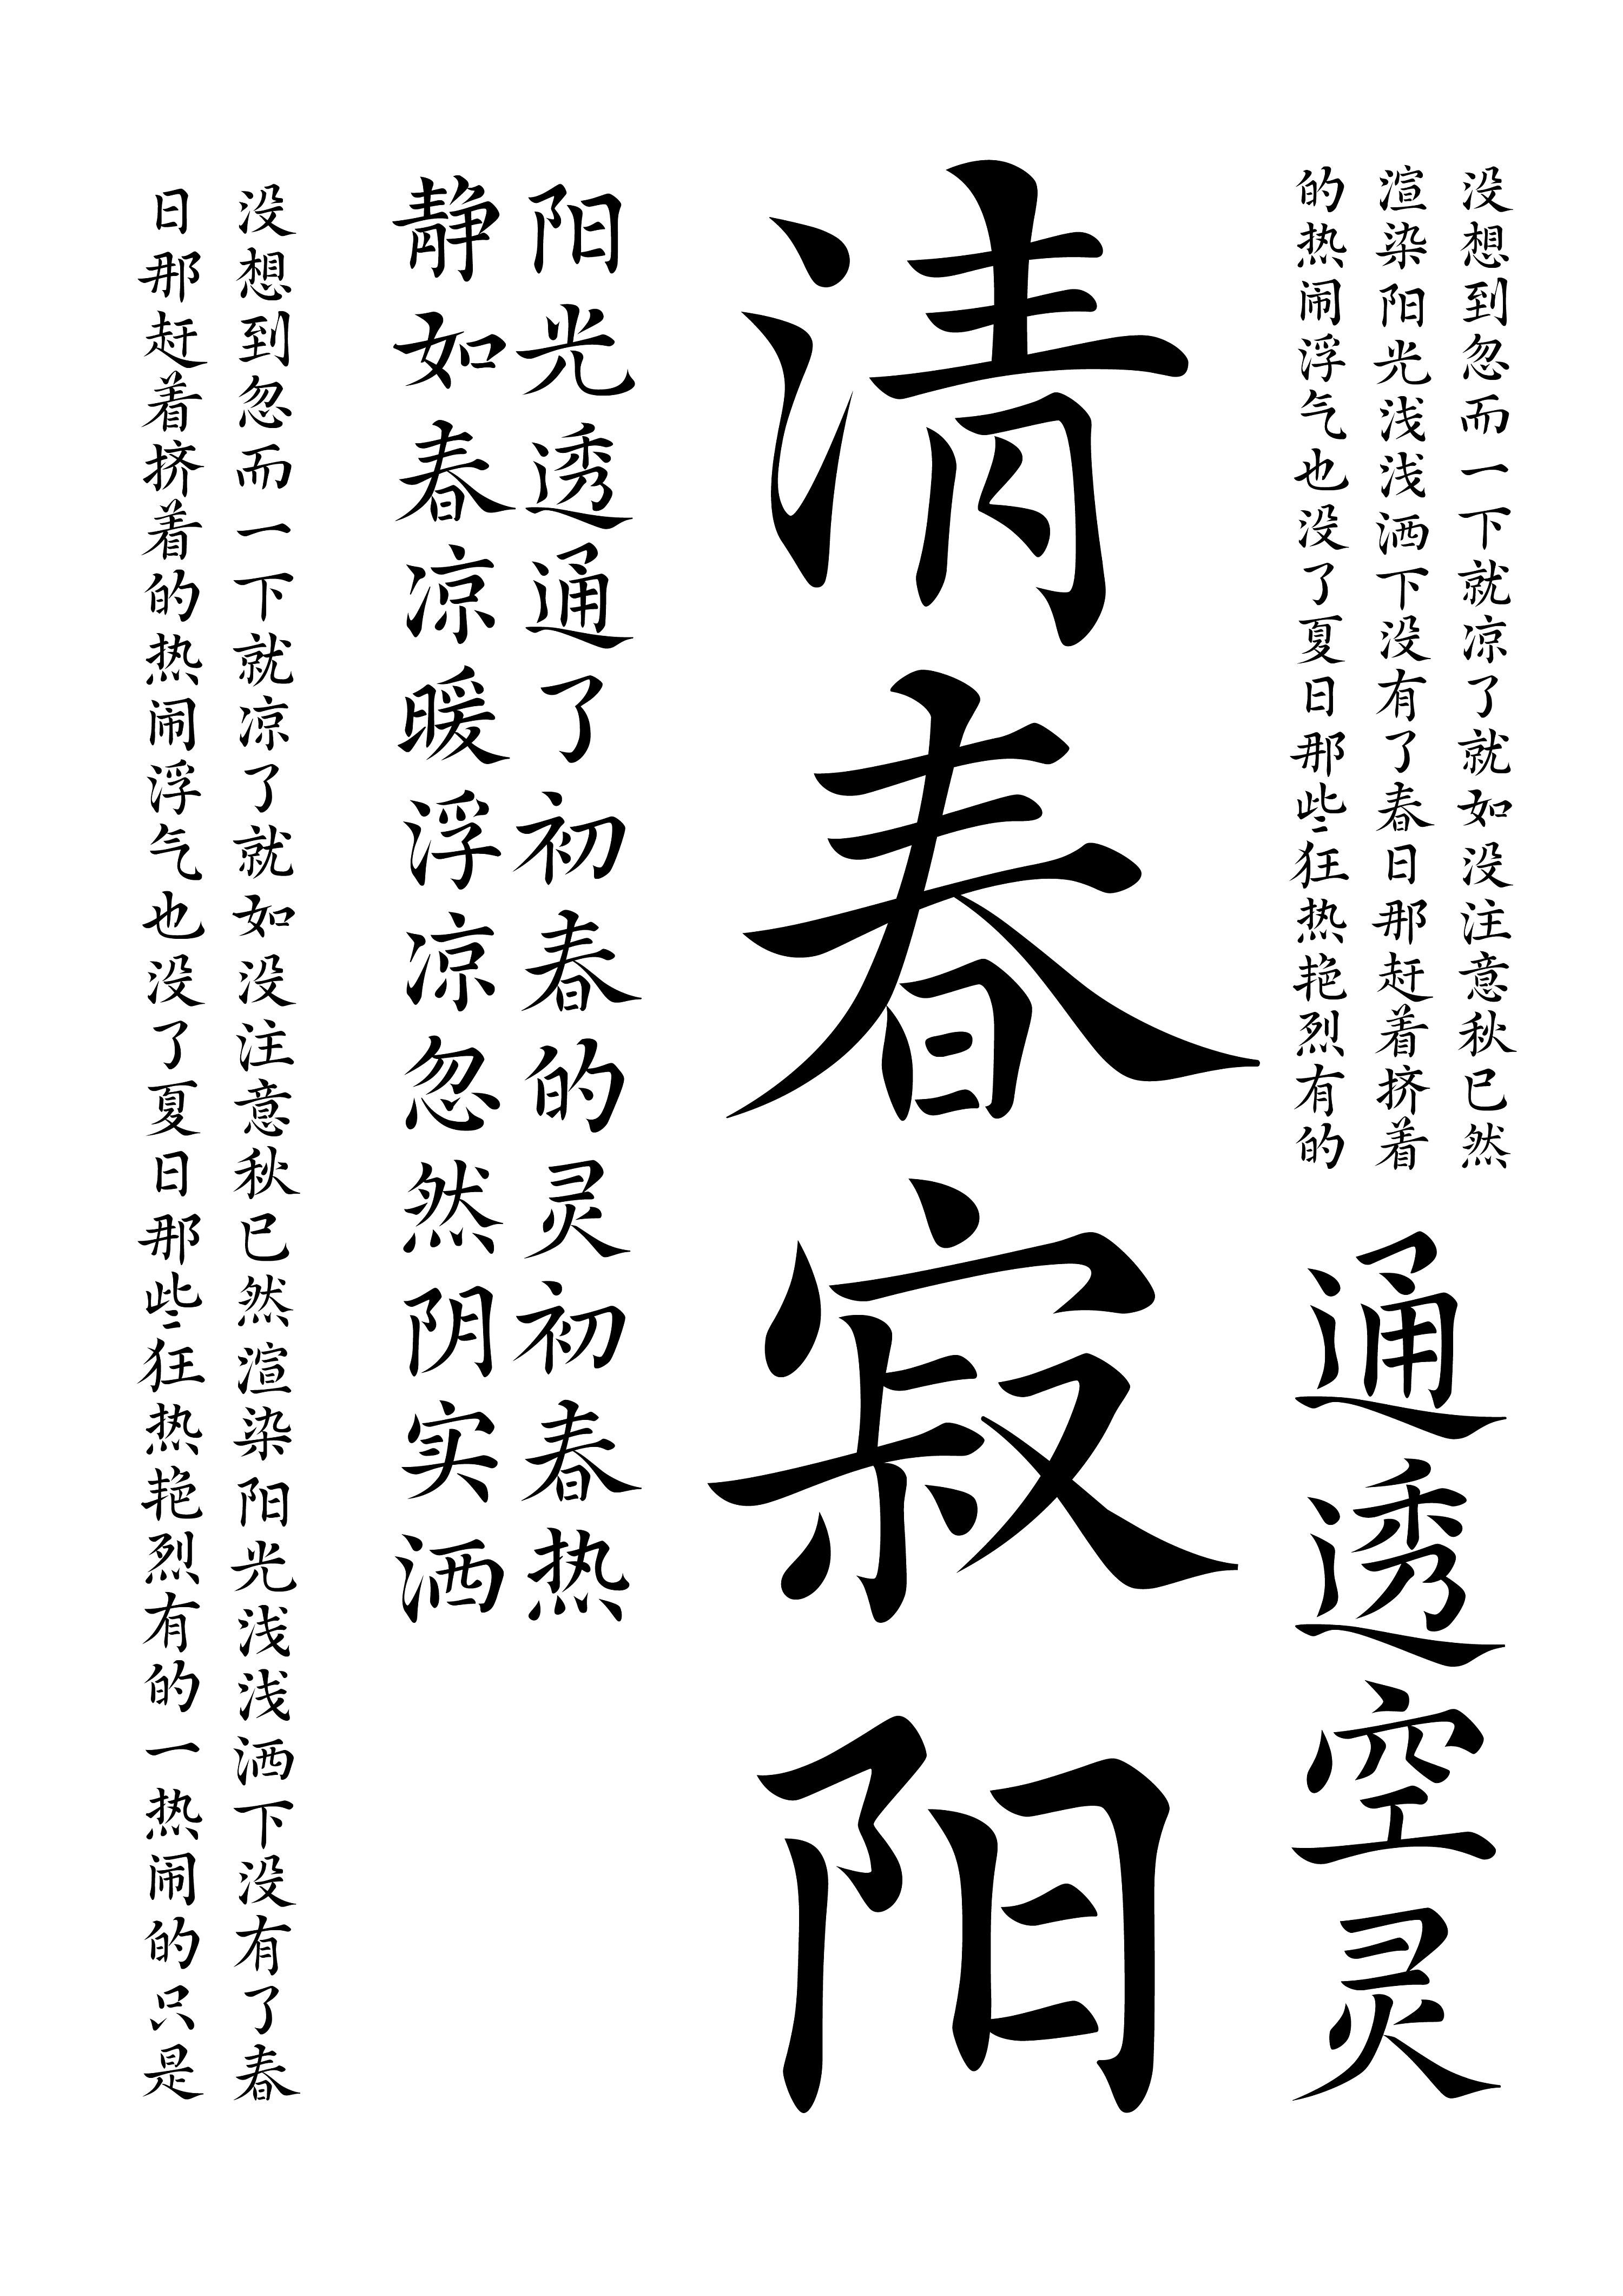 没想到忽而一下就凉了就如没注意秋已然
渲染阳光浅浅洒下没有了春日那赶着挤着
的热闹浮气也没了夏日那些狂热艳烈有的
通透空灵
清春寂阳
阳光透通了初春的灵初春热
静如春凉暖浮凉忽然阴实洒
没想到忽而一下就凉了就如没注意秋已然渲染阳光浅浅洒下没有了春
日那赶着挤着的热闹浮气也没了夏日那些狂热艳烈有的一热闹的只是